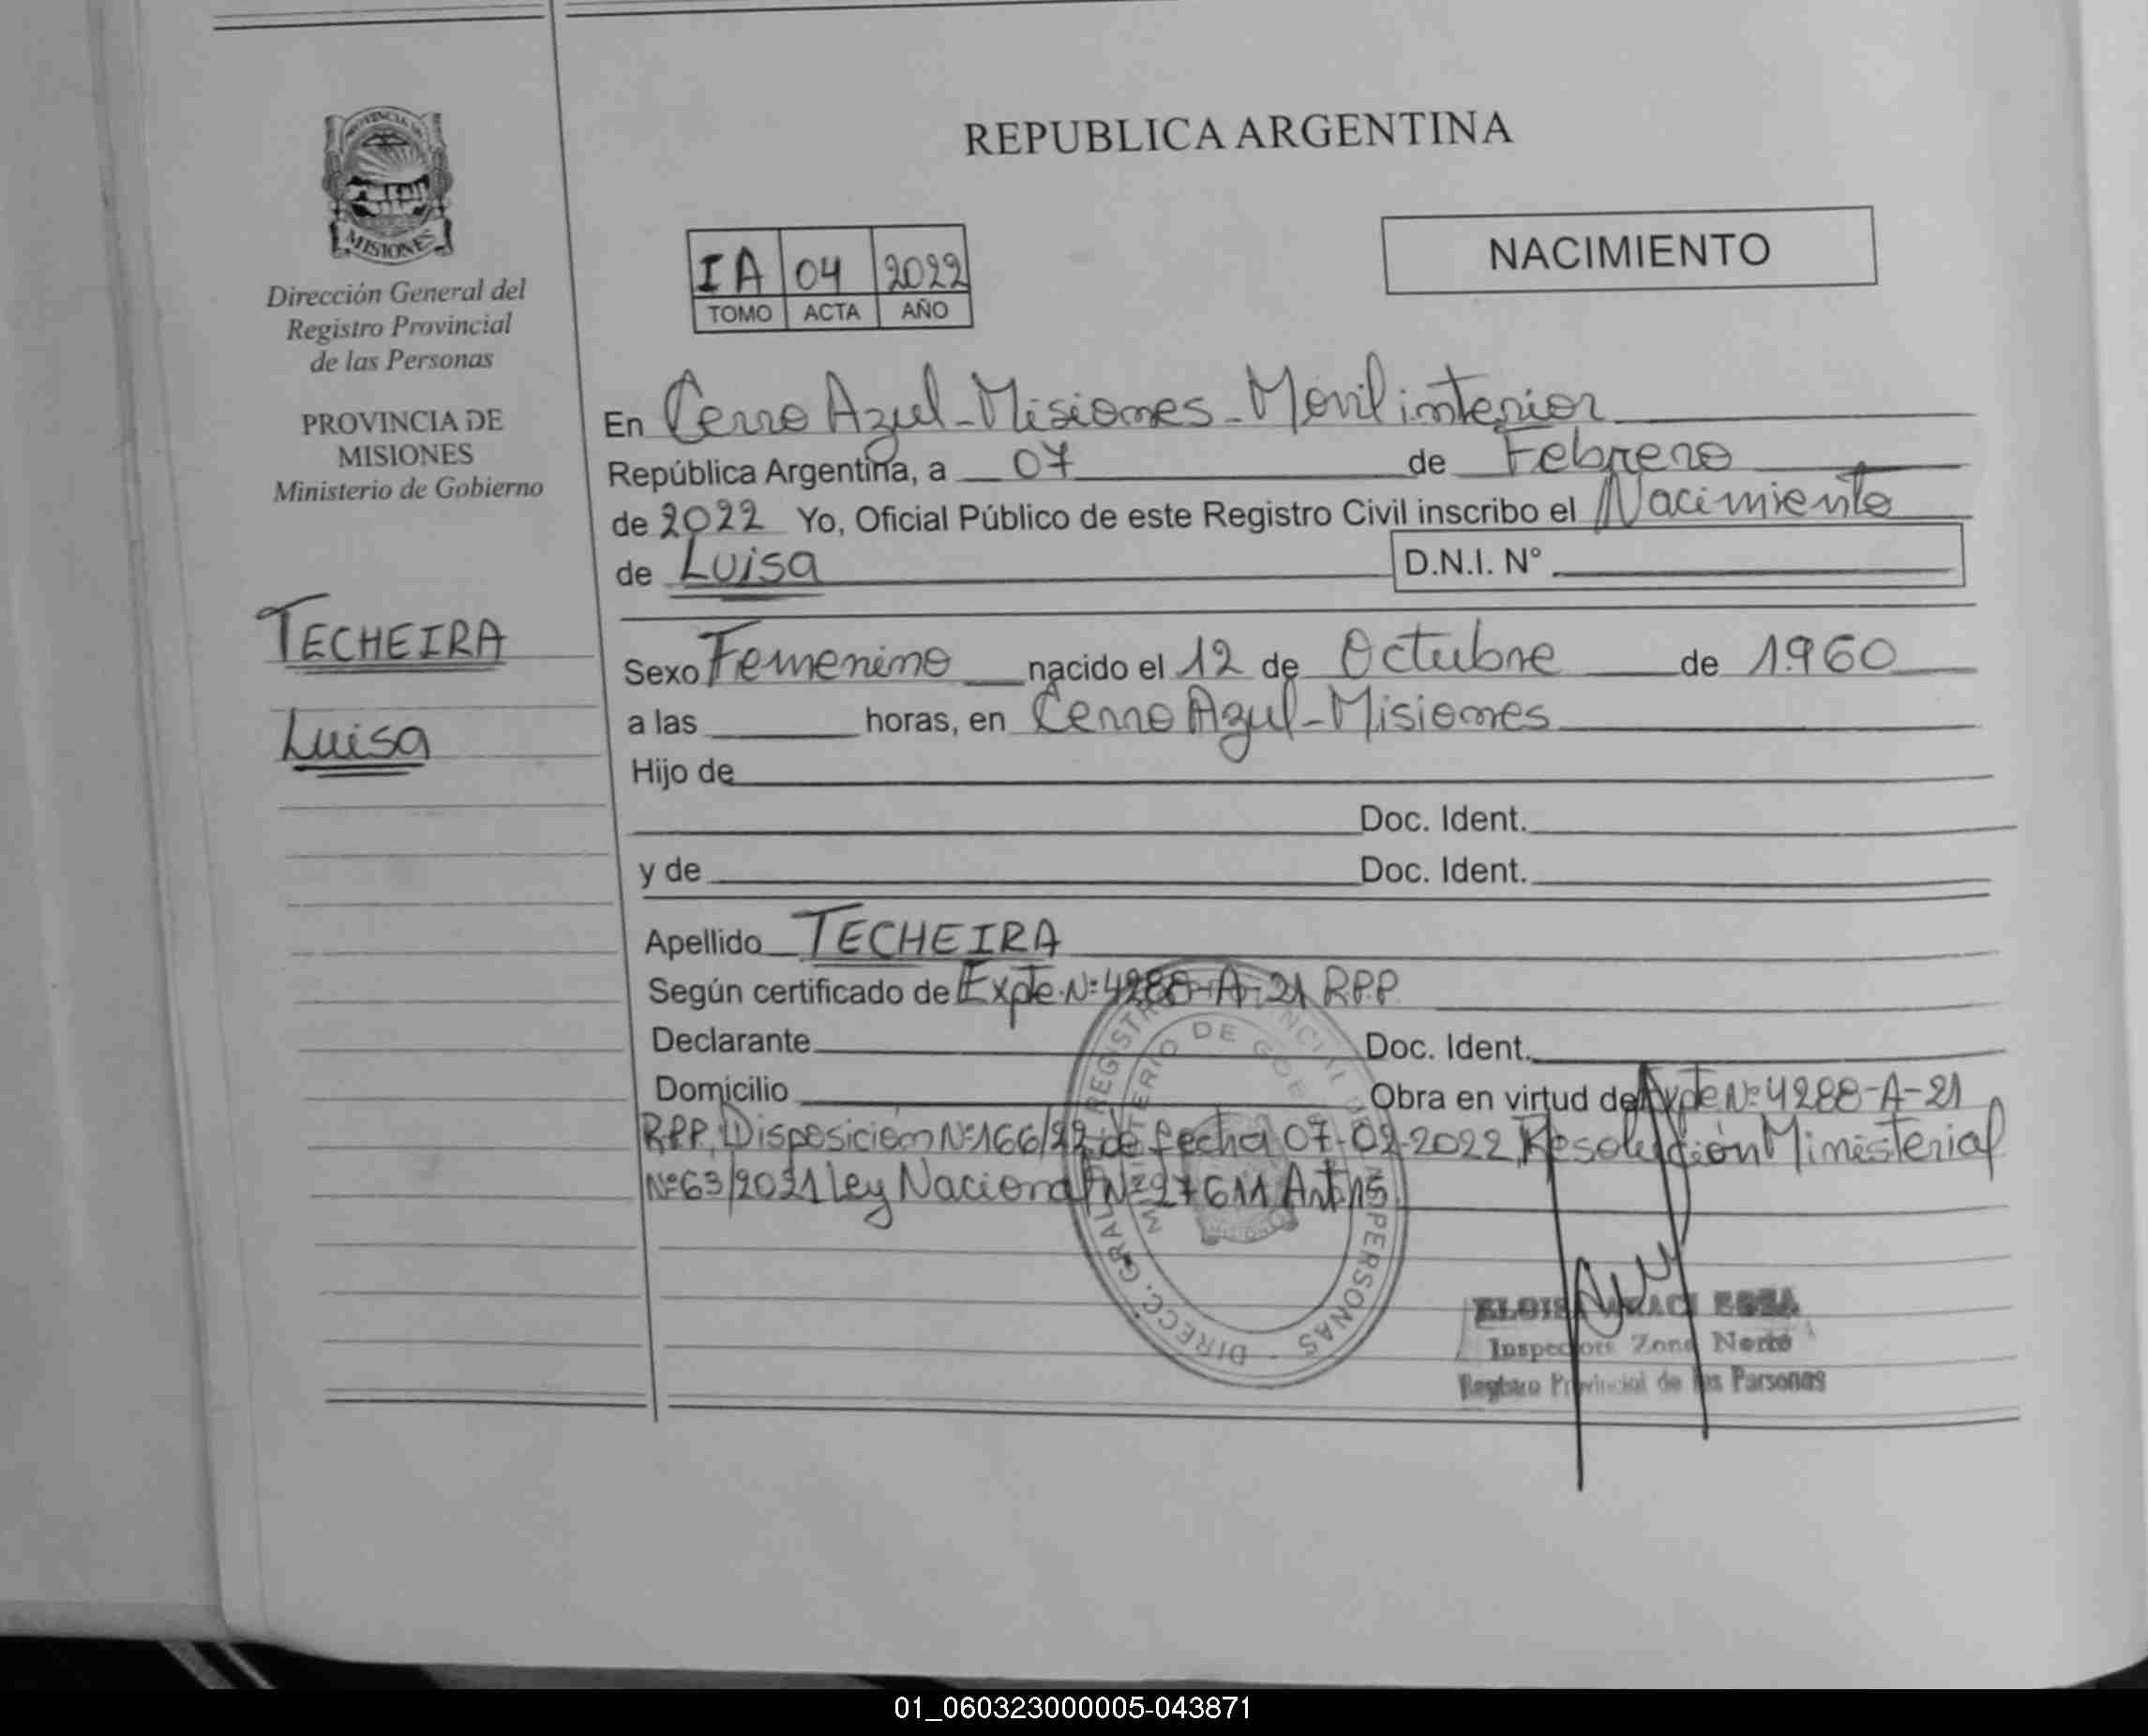 PROVINCIA DE
MISIONES
Dirección General del
Registro Provincial
de las Personas
PROVINCIA DE
MISIONES
Ministerio de Gobierno
TECHEIRA
Luisa
REPUBLICA ARGENTINA
IA 04 2022
TOMO ACTA AÑO
NACIMIENTO
En Cerro Azul - Misiones - Movil interior
República Argentina, a 07 de Febrero
de 2022 Yo, Oficial Público de este Registro Civil inscribo el Nacimiento
de Luisa D.N.I. Nº
Sexo Femenino nacido el 12 de Octubre de 1960
a las horas, en Cerro Azul - Misiones
Hijo de
Doc. Ident.
y de Doc. Ident.
Apellido TECHEIRA
Según certificado de Expte. Nº 4288-A-21 RPP
Declarante Doc. Ident.
Domicilio Obra en virtud de Expte Nº 4288-A-21
RPP, Disposición Nº 166/22 de fecha 07-02-2022, Resolución Ministerial
Nº 63/2021 Ley Nacional Nº 27611 Art Nº5
DIRECC. GRAL. REGISTRO PROVINCIAL DE LAS PERSONAS
MINISTERIO DE GOBIERNO
MISIONES
Inspectora Zona Norte
Registro Provincial de las Personas
01_060323000005-043871